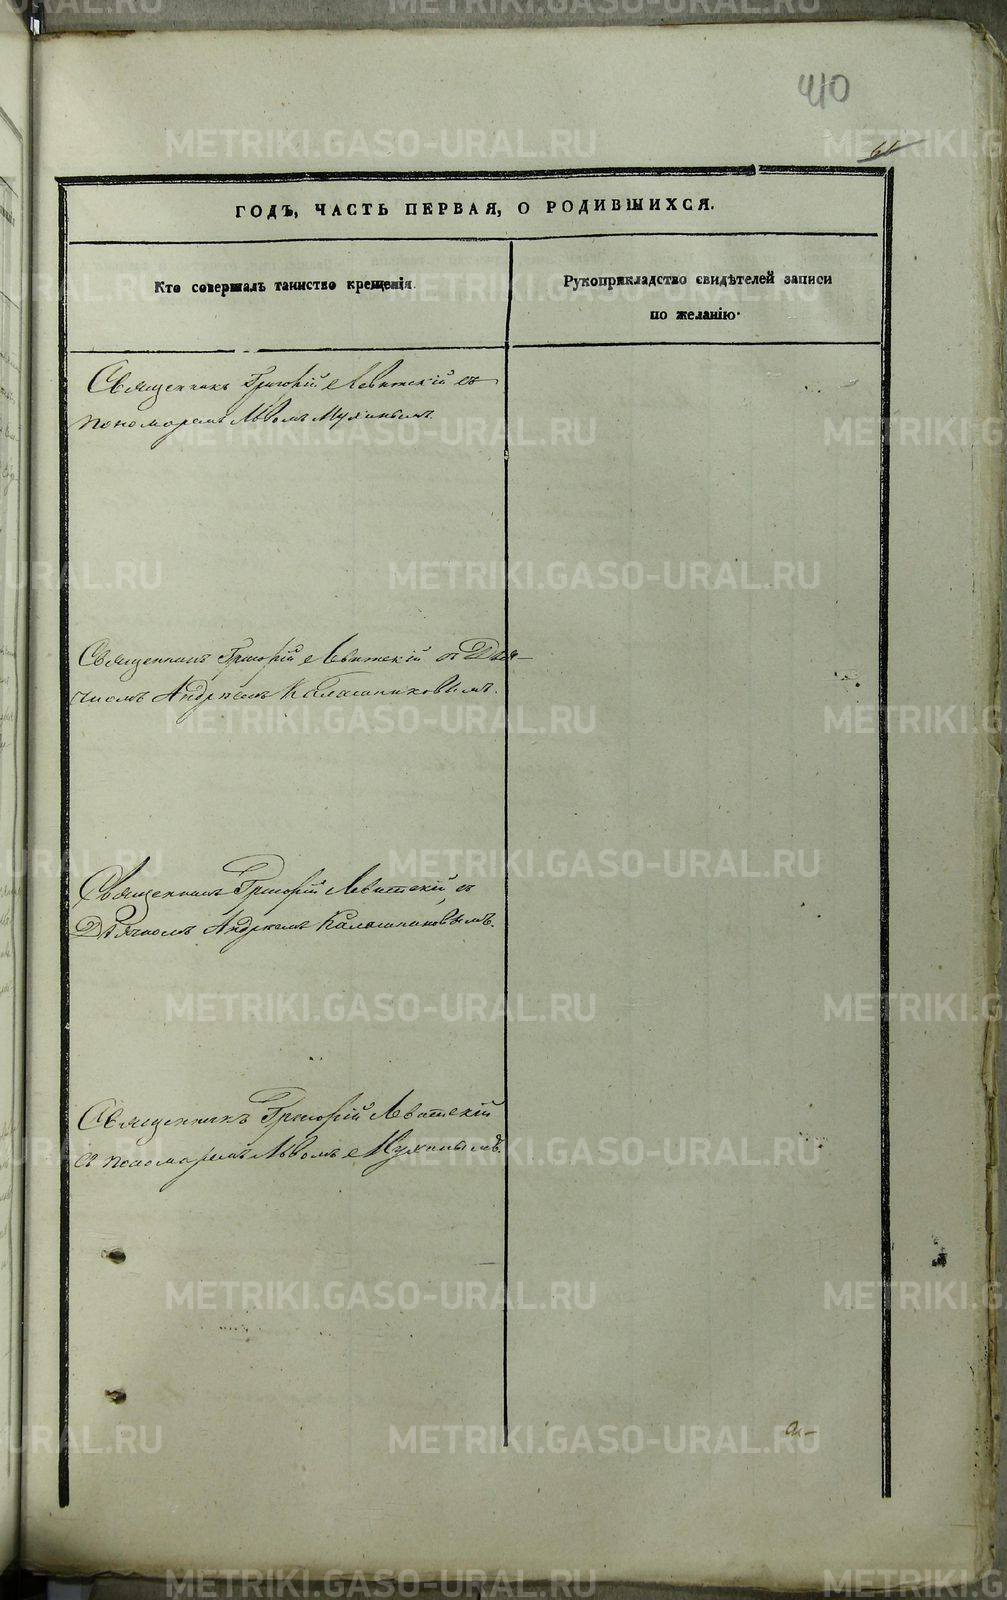 410
61
ГОДЪ, ЧАСТЬ ПЕРВАЯ, О РОДИВШИХСЯ.
Кто совершалъ таинство крещенія.
Рукоприкладство свидѣтелей записи
по желанію.
Священникъ Григорій Левитскій съ
пономаремъ Львомъ Мухинымъ.
Священникъ Григорій Левитскій съ Дья-
чкомъ Андреемъ Калашниковымъ.
Священникъ Григорій Левитскій съ
Дьячкомъ Андреемъ Калашниковымъ.
Священникъ Григорій Левитскій
съ пономаремъ Львомъ Мухинымъ.
METRIKI.GASO-URAL.RU